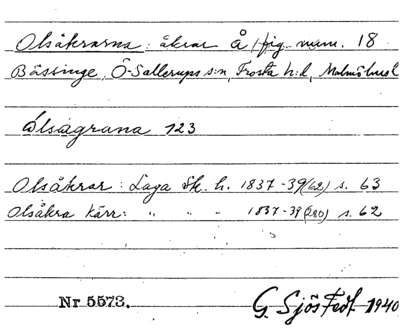 Olsåkrarna: åkrar å fig. num. 18
Bässinge, Ö-Sallerups s:n, Frosta h:d, Malmöhus l
Olsågrana 123
Olsåkrar: Laga sk. h. 1837-39(62) s. 63
Olsåkra kärr: " " " 1837-39(280) s. 62
Nr 5573.
G Sjöstedt 1940